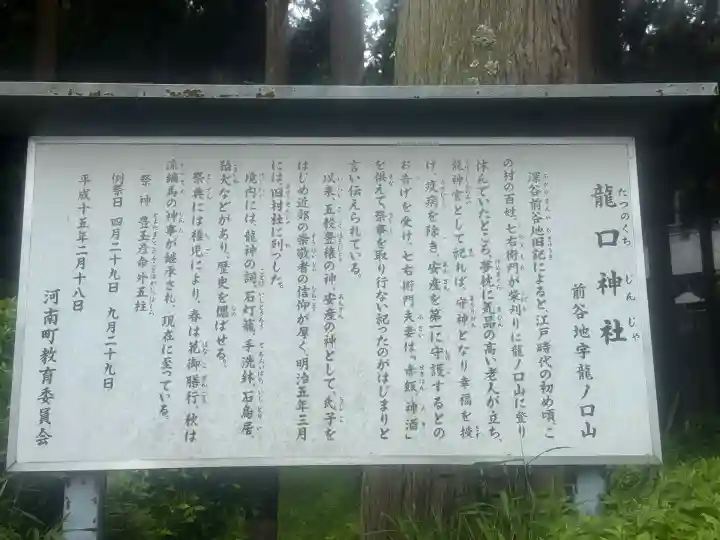 龍口神社
たつのくち じんじゃ
前谷地字龍ノ口山
深谷前谷地旧記によると、江戸時代の初め頃、こ
の村の百姓、七右衛門が柴刈りに龍ノ口山に登り
休んでいたところ、夢枕に気品の高い老人が立ち、
龍神宮として祀れば、守神となり幸福を授
け、疫病を除き、安産を第一に守護するとの
お告げを受け、七右衛門夫妻は、「赤飯、神酒」
を供えて、祭事を取り行ない祀ったのがはじまりと
言い伝えられている。
以来、五穀豊穣の神、安産の神として、氏子を
はじめ近郷の崇敬者の信仰が厚く、明治五年三月
には旧村社に列した。
境内には、龍神の詞、石灯籠、手洗鉢、石鳥居、
狛犬などがあり、歴史を偲ばせる。
祭典には稚児により、春は花御膳行、秋は
流鏑馬の神事が継承され、現在に至っている。
祭神 豊玉彦命外五柱
例祭日 四月二十九日 九月二十九日
平成十五年二月十八日
河南町教育委員会